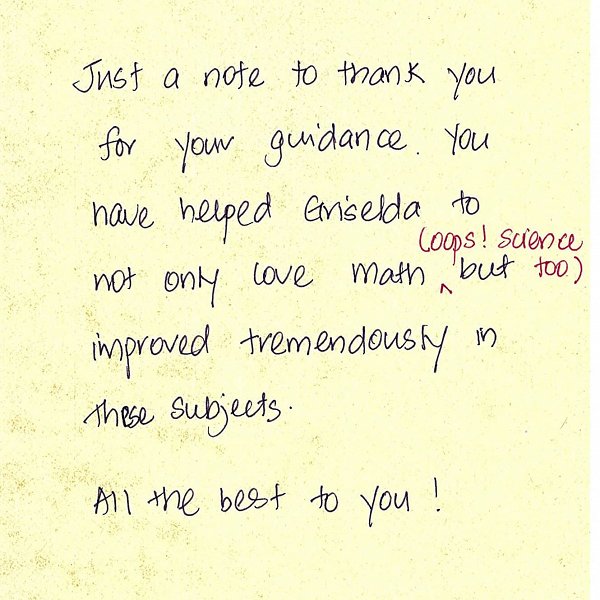 Just a note to thank you
for your guidance. You
have helped Griselda to
(oops! Science
not only love math ^ but too)
improved tremendously in
these subjects.
All the best to you!